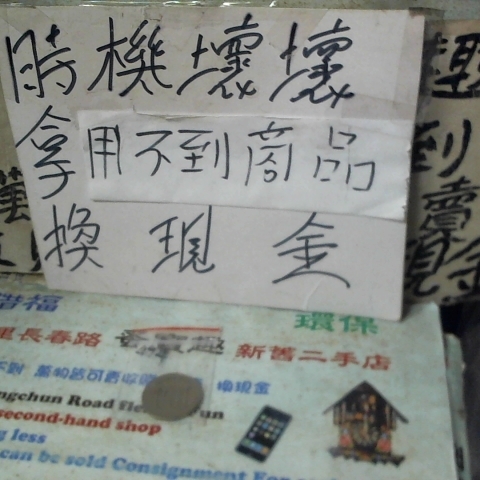 時機壞壞
拿用不到商品
換現金
到
賣
現金
惜福
環保
里長春路
新舊二手店
換現金
ngchun Road
second-hand shop
g less
can be sold Consignment For